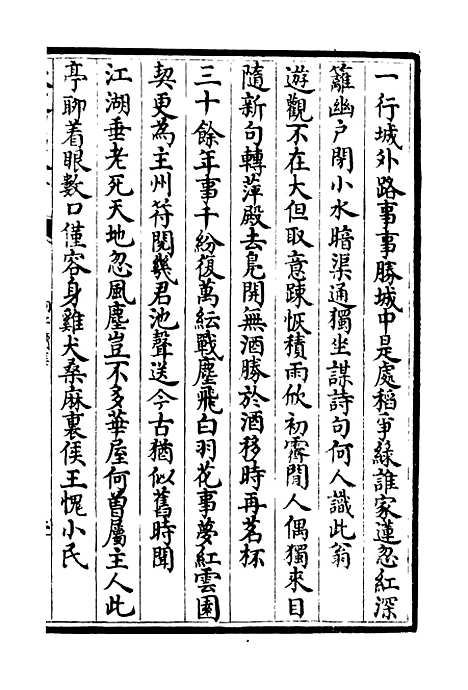 一行城外路事事勝城中是處稻爭綠誰家蓮忽紅深
籬幽戶閉小水暗渠通獨坐謀詩句何人識此翁
遊觀不在大但取意踈恢積雨欣初霽閒人偶獨來目
隨新句轉萍殿去鳧開無酒勝於酒移時再茗杯
三十餘年事千紛復萬紜戰塵飛白羽花事夢紅雲園
契更為主州符閱幾君池聲送今古猶似舊時聞
江湖垂老死天地忽風塵豈不多華屋何曽屬主人此
亭聊着眼數口僅容身雞犬桑麻裏侯王愧小民